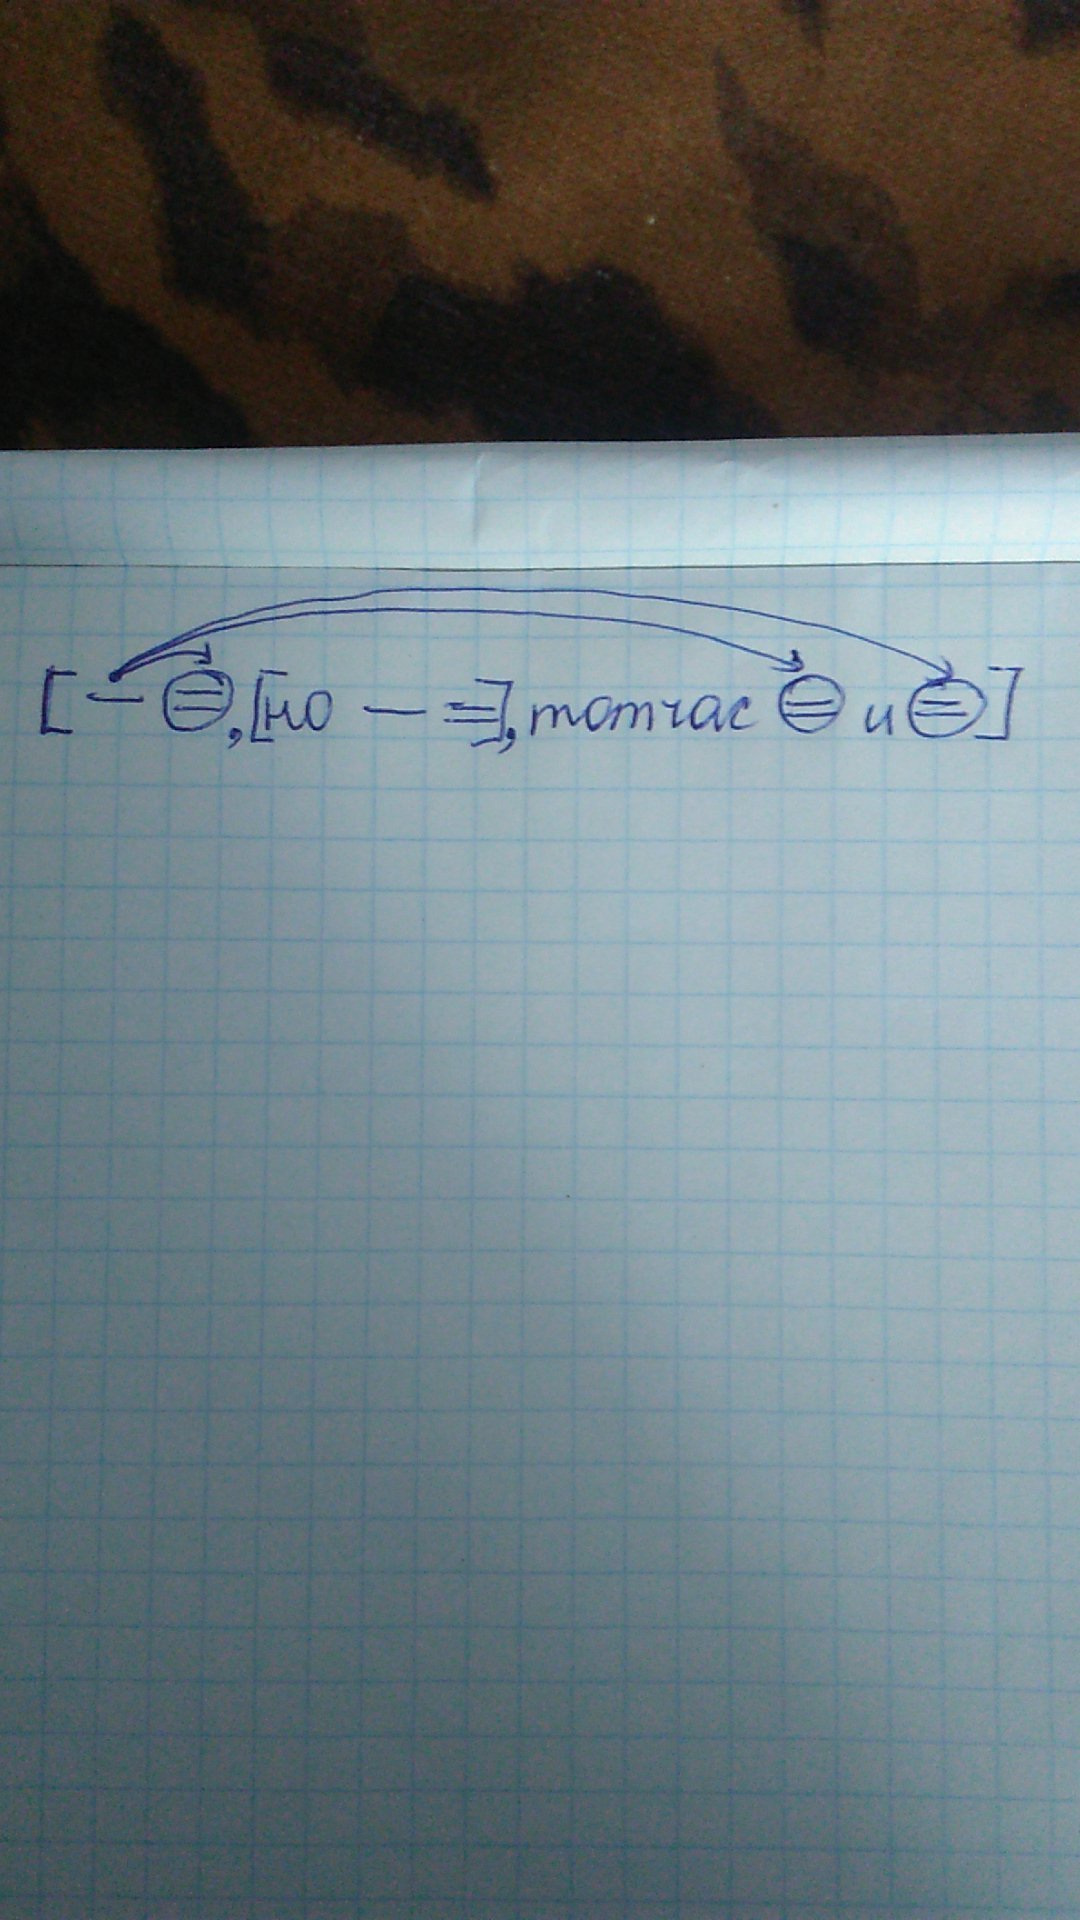 [– =, [но – =], тотчас = и =]